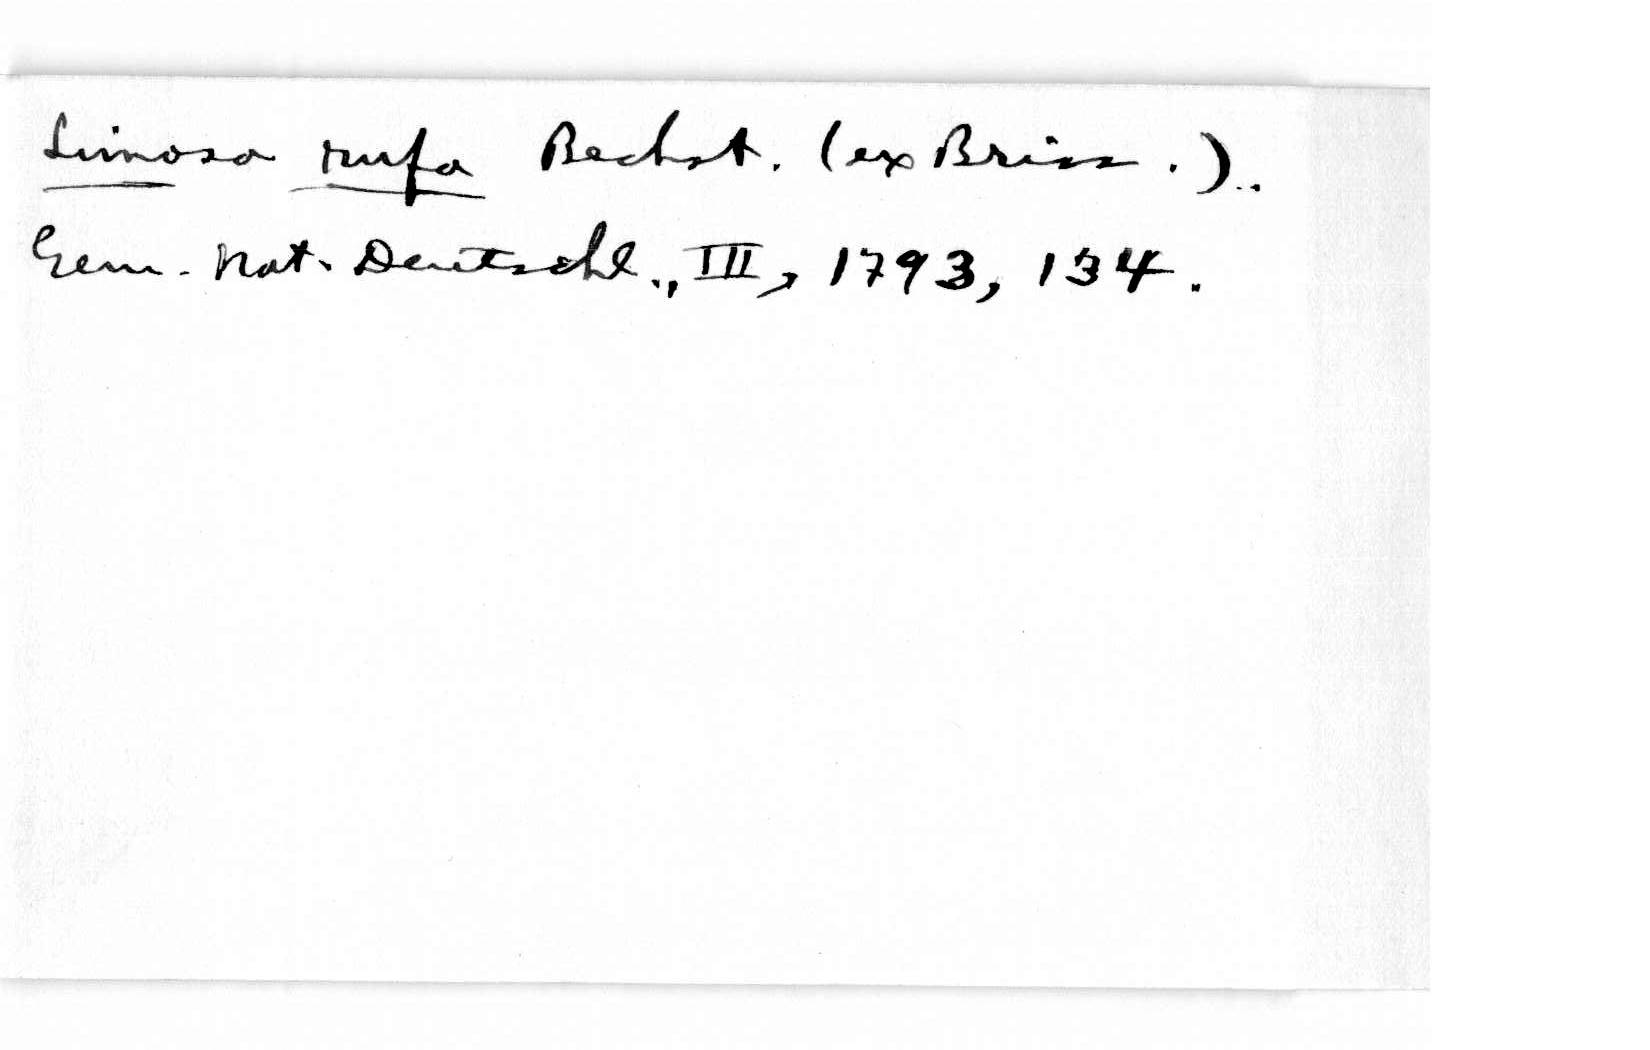 Limosa rufa Bechst. (ex Briss.)..
Gem. Nat. Deutschl., III, 1793, 134.